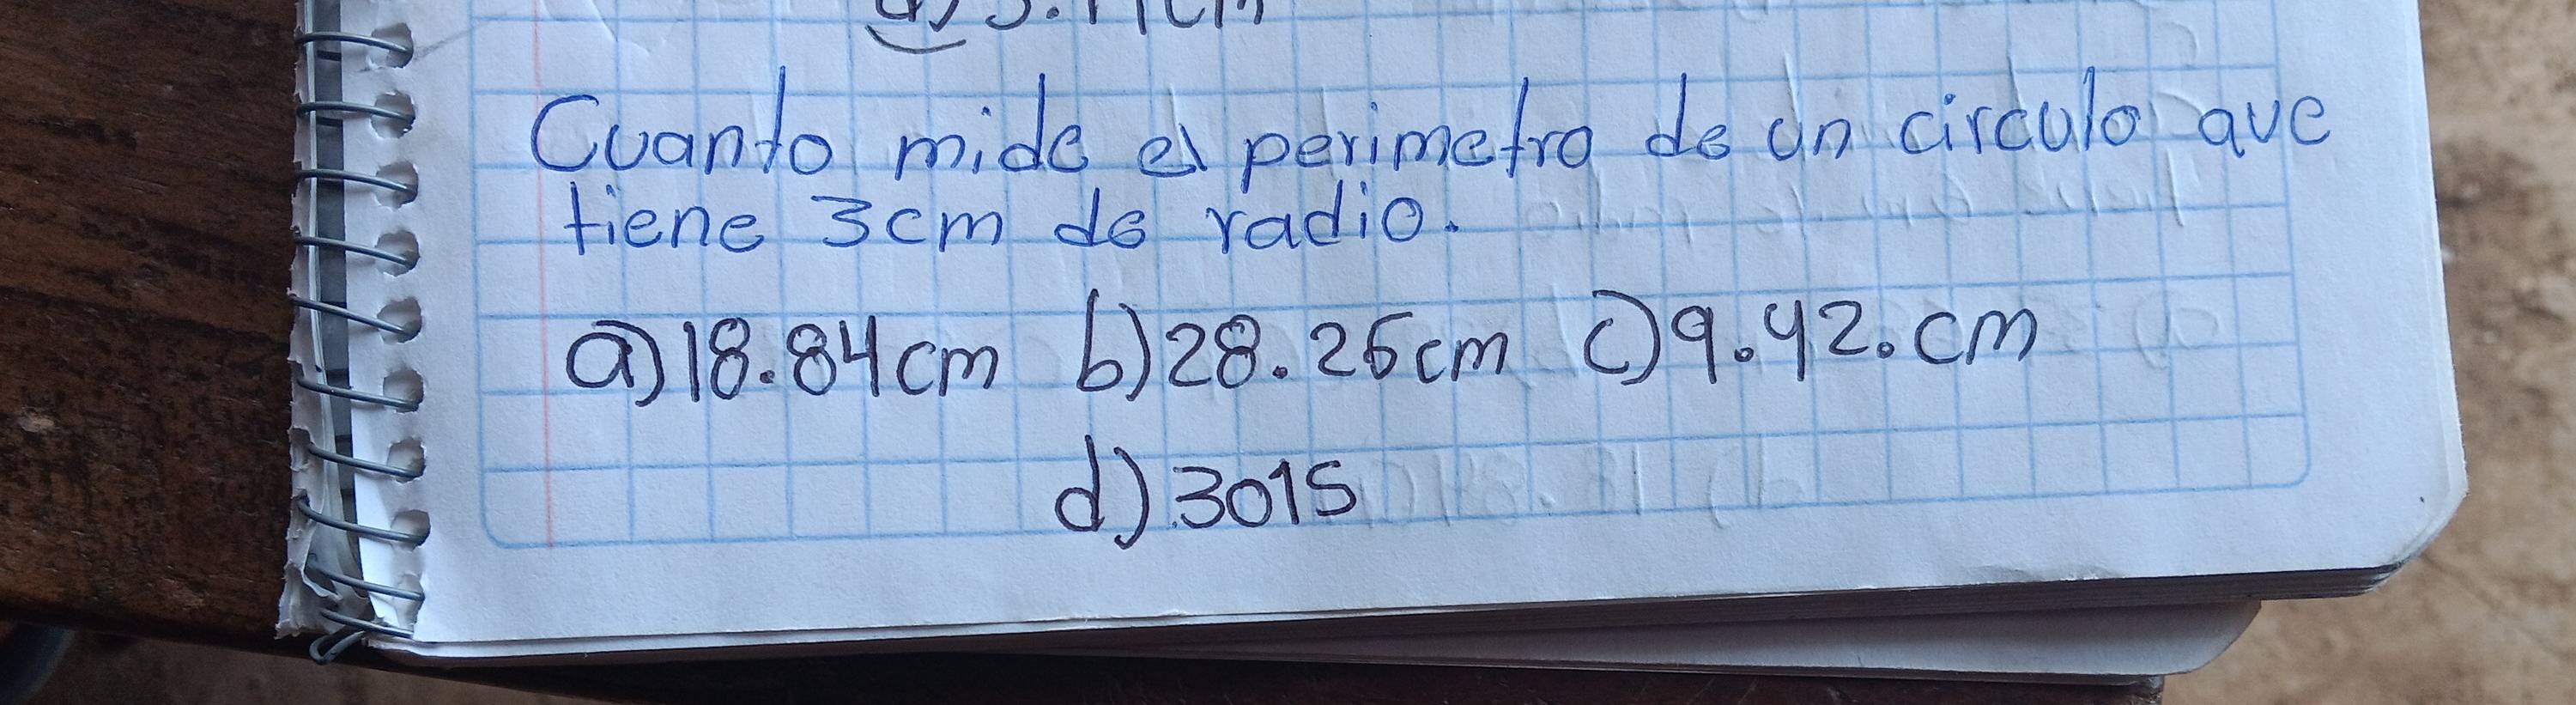 Cuanto mide el perimetro de un circulo que
tiene 3cm de radio.
a)18.84cm b)28.26cm c)9.42.cm
d)3015